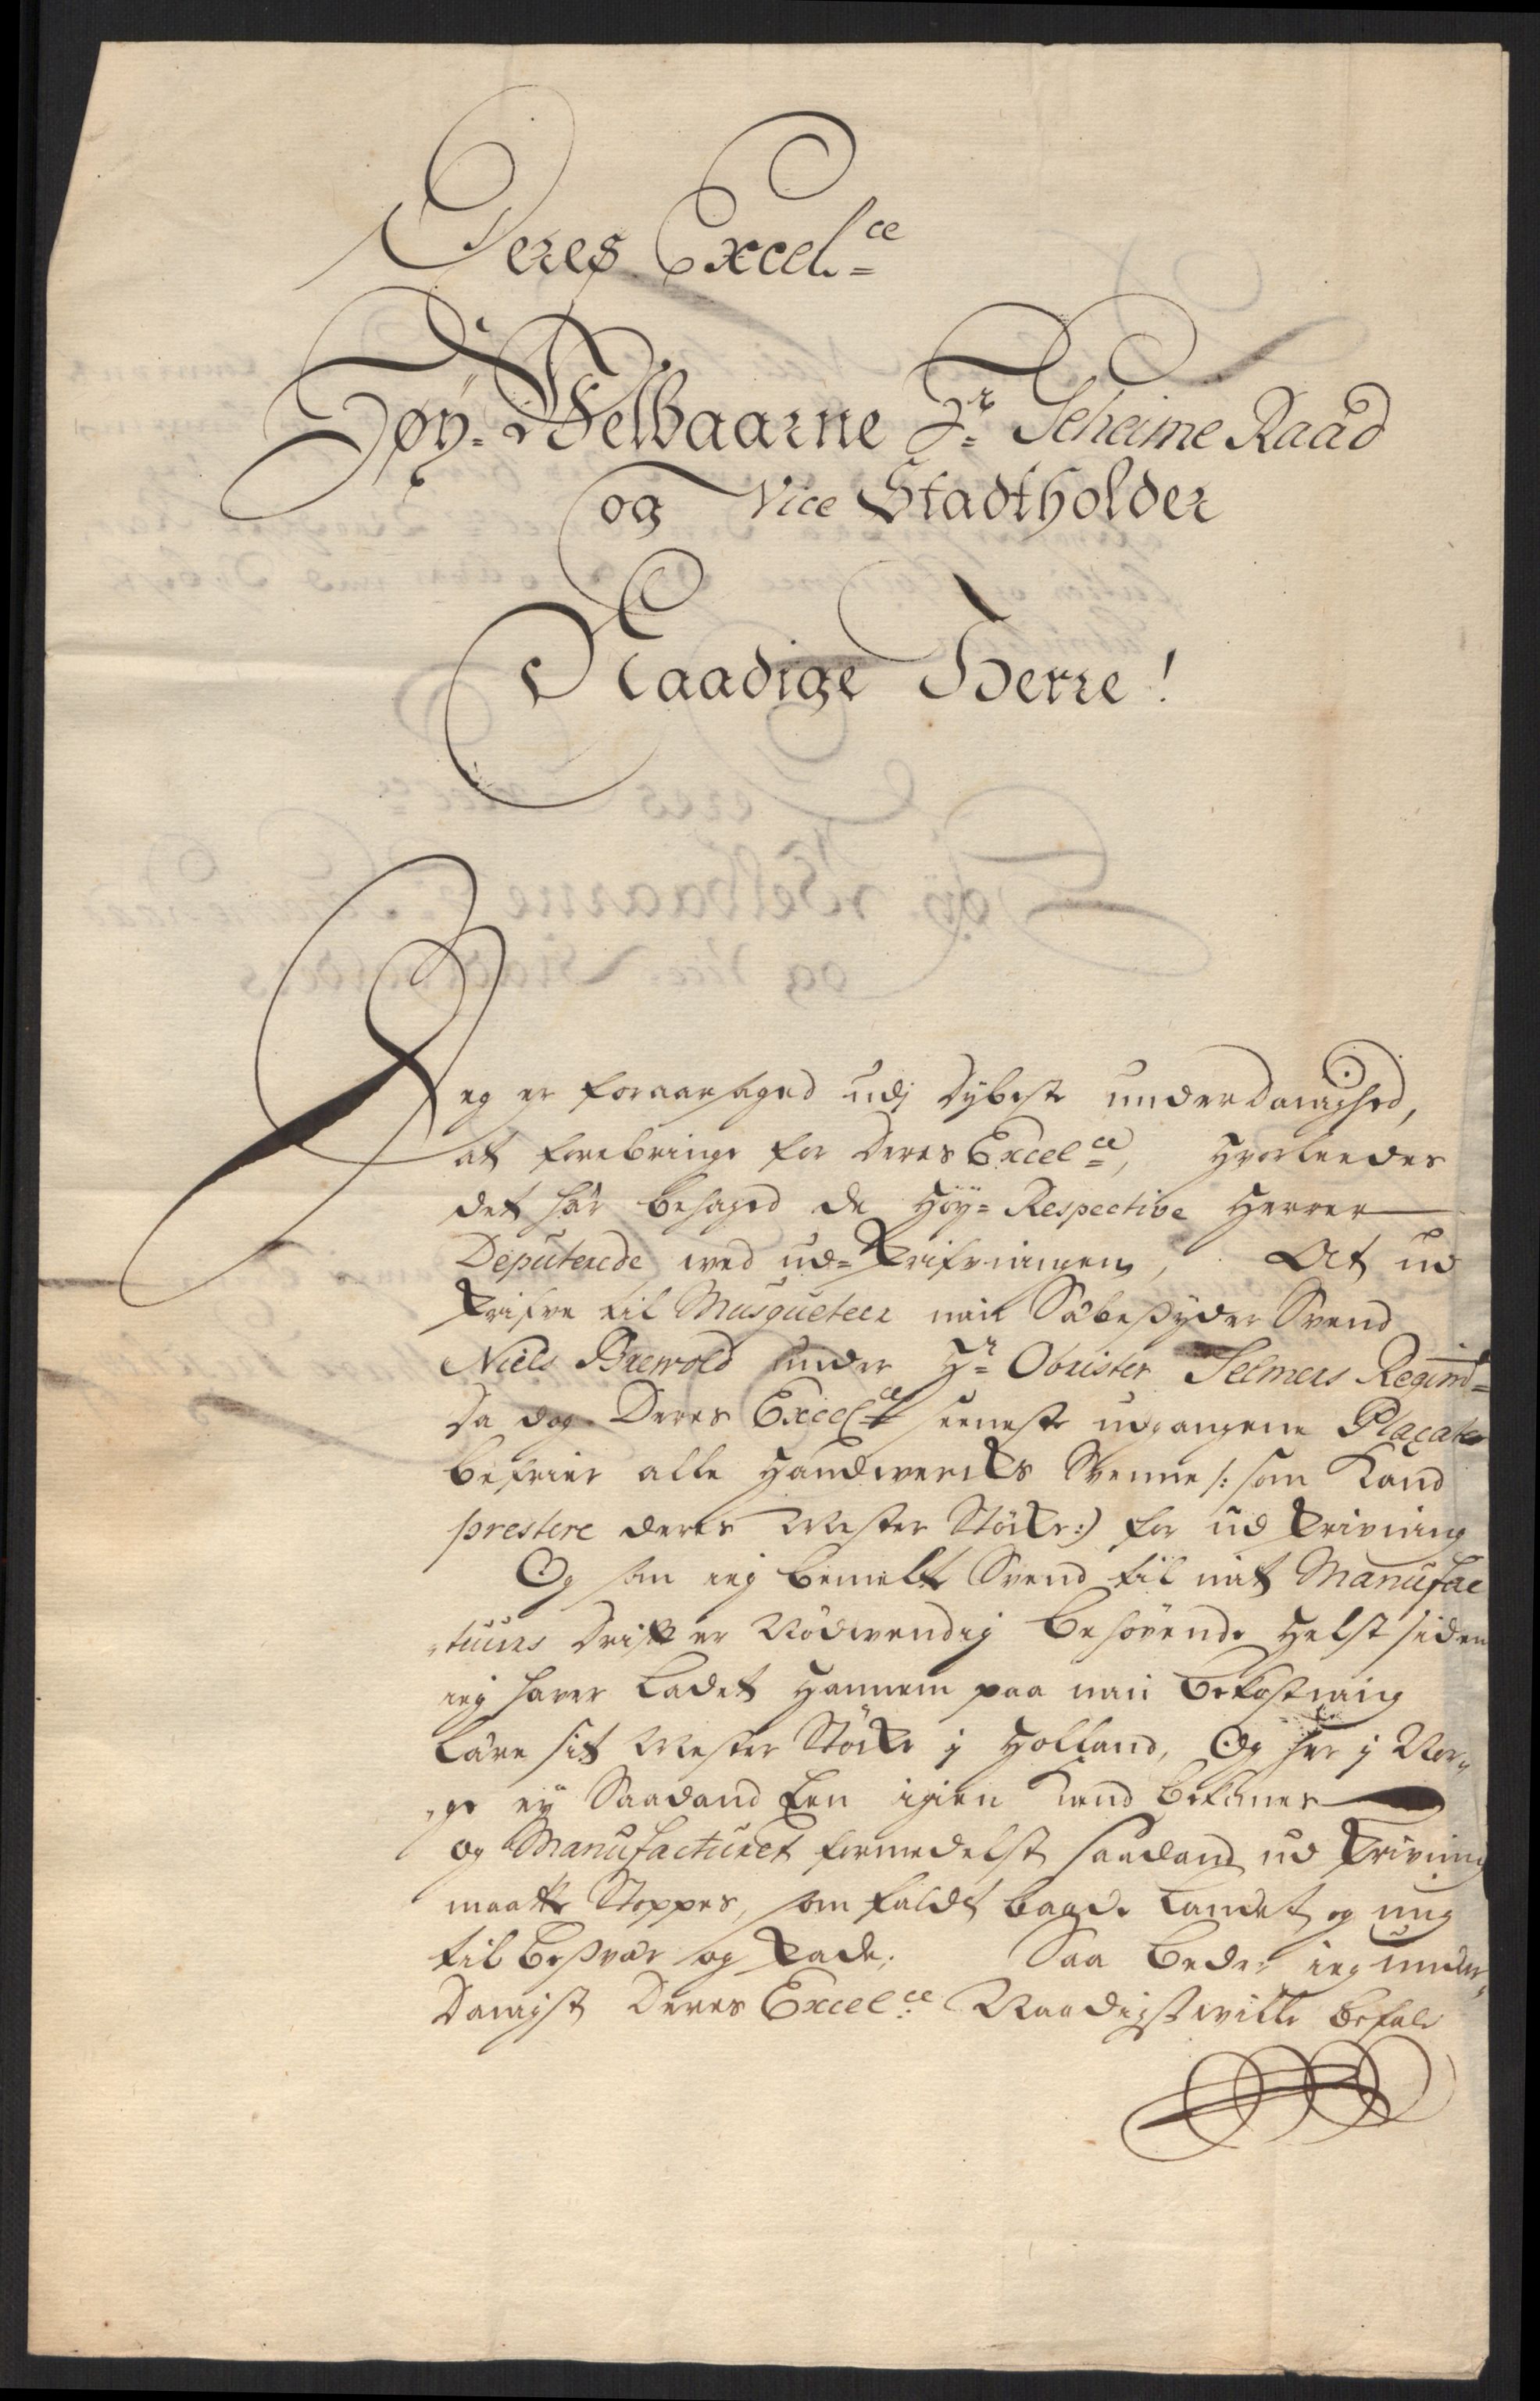 Deres Excel.ce
Høy-Welbaarne Hr Geheime Raad
og Vice Stadtholder
Naadige Herre!
Jeg er foraarsaged udj dybeste underdanighed,
at forebringe for Deres Excel.ce, hvorleedes
det här behaged de Høy- Respective Herrer
Deputerede ved ud-skrifningen, At ud
skrifve til Musqueteer min Säbesyder Svend
Niels Brewold under Hr Obrister Selmers Regimt
Da dog Deres Excel.ce seeneste udgangene Placater
befrier alle Handwercks Svenne /: som kand
prestere deres Mester Stöcke :/ for udskrivning
Og som ieg bemelte Svend til mit Manufac
-tuurs drift er Nödwendig behövende helst siden
ieg haver ladet hannem paa min bekostning
läre sit Mester Stöcke i Holland, Og her i Nor-
-ge ey Saadand Een igien kand bekomes
og Manufacturet formedelst saadand udskrivning
maatte Stoppes, som faldt baade Landet og mig
til Besvär og skade. Saa beder ieg under-
danigst Deres Excel.ce Naadigst wille befale